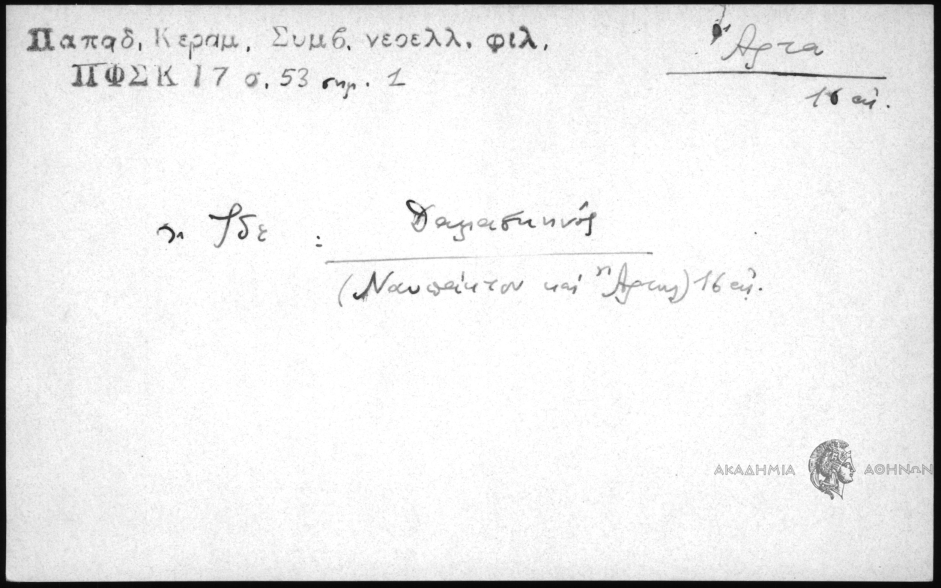 Παπαδ. Κεραμ. Συμβ. νεοελλ. φιλ.
ΠΦΣΚ 17 σ. 53 σημ. 1
Ἄρτα
16 αἰ.
Ἰδε : Δαμασκηνός
(Ναυπάκτου καί Ἄρτης) 16 αἰ.
ΑΚΑΔΗΜΙΑ ΑΘΗΝΩΝ